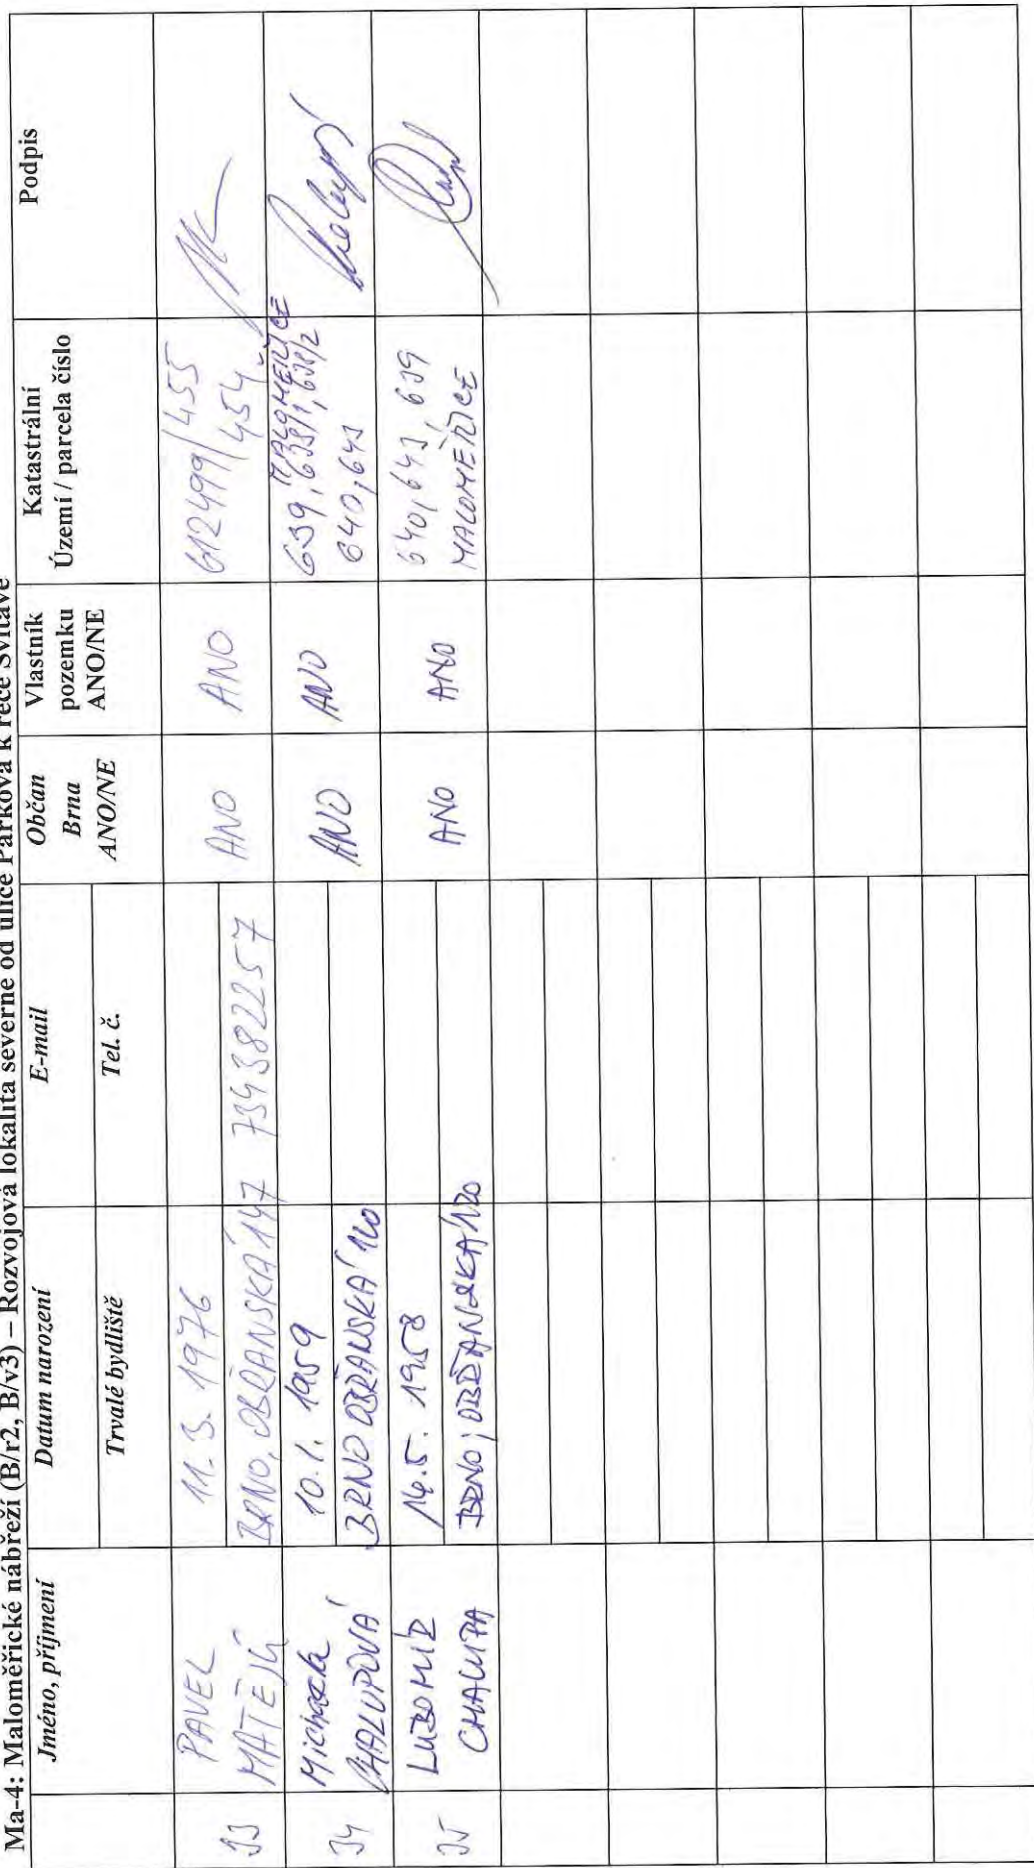 Ma-4: Maloměřické nábřeží (B/r2, B/v3) – Rozvojová lokalita severně od ulice Parková k řece Svitavě
Jméno, příjmení
Datum narození
Trvalé bydliště
E-mail
Tel. č.
Občan
Brna
ANO/NE
Vlastník
pozemku
ANO/NE
Katastrální
Území / parcela číslo
Podpis
33
PAVEL
MATĚJŮ
11. 3. 1976
BRNO, OBŘANSKÁ 147
734382257
ANO
ANO
612499/455
454
34
Michaela
CHALUPOVÁ
10. 1. 1959
BRNO OBŘANSKÁ 120
ANO
ANO
MALOMĚŘICE
639, 638/1, 638/2
640, 643
35
LUBOMÍR
CHALUPA
14. 5. 1958
BRNO, OBŘANSKÁ 120
ANO
ANO
640, 643, 639
MALOMĚŘICE